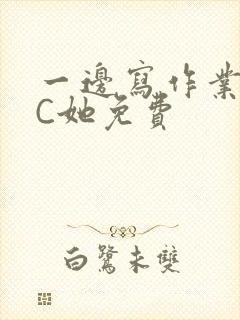 一邊寫作業
C她免費
白鷺未雙